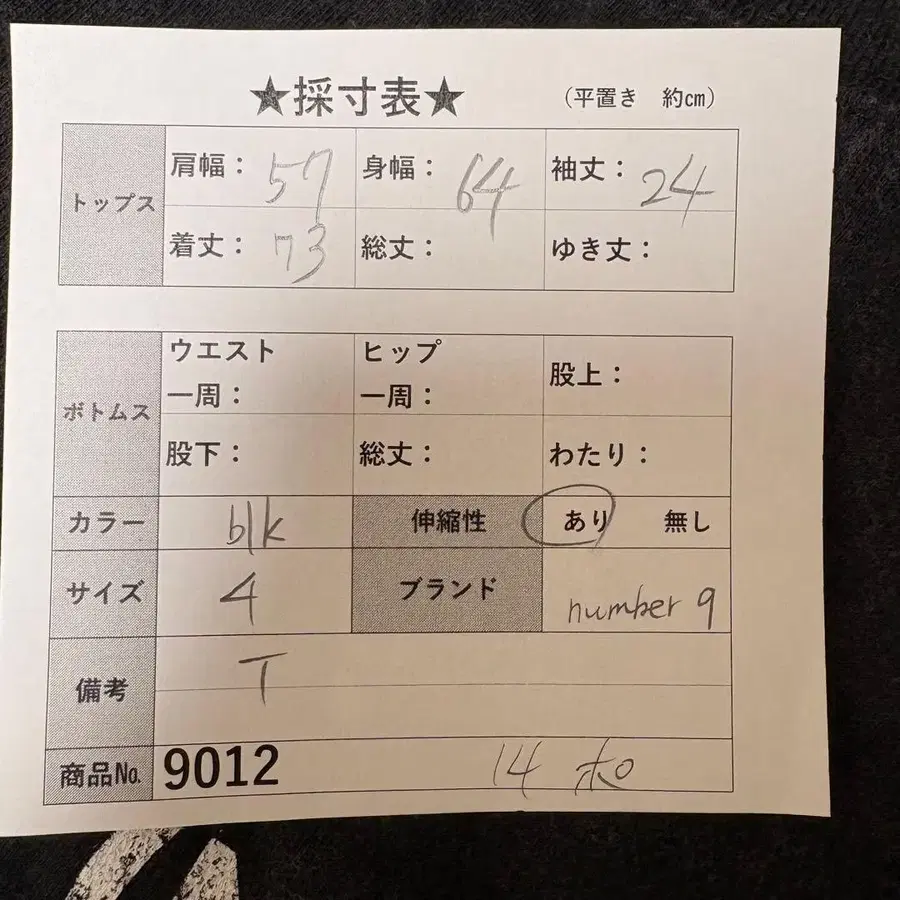 ★採寸表★ （平置き 約㎝）
トップス
肩幅： 57 身幅： 64 袖丈： 24
着丈： 73 総丈： ゆき丈：
ボトムス
ウエスト一周： ヒップ一周： 股上：
股下： 総丈： わたり：
カラー blk 伸縮性 あり 無し
サイズ 4 ブランド number 9
備考 T
商品No. 9012 14 ポ